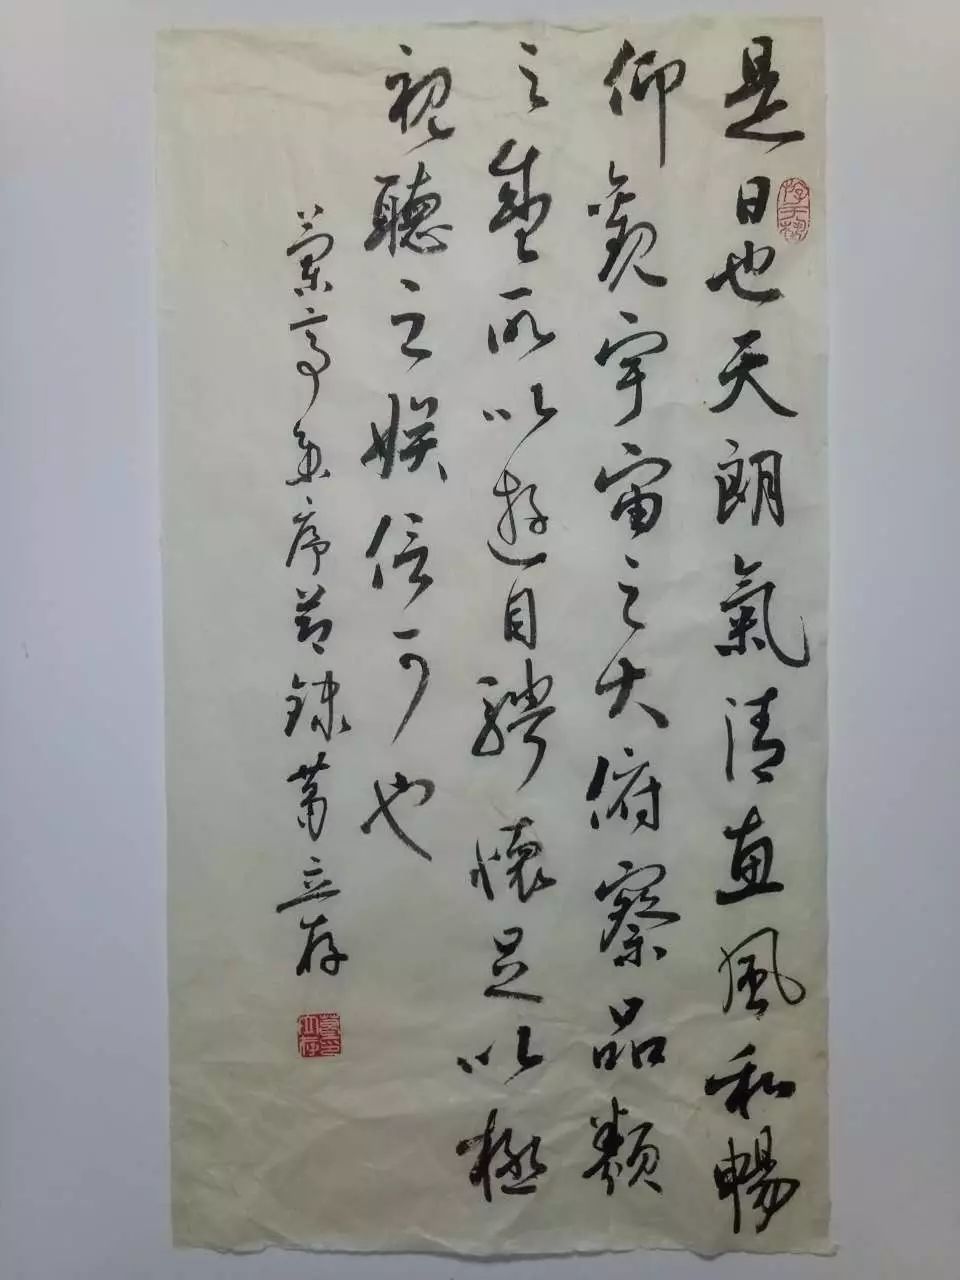 是日也天朗氣清惠風和暢
仰觀宇宙之大俯察品類
之盛所以遊目騁懷足以極
視聽之娛信可也
蘭亭集序節錄 立存